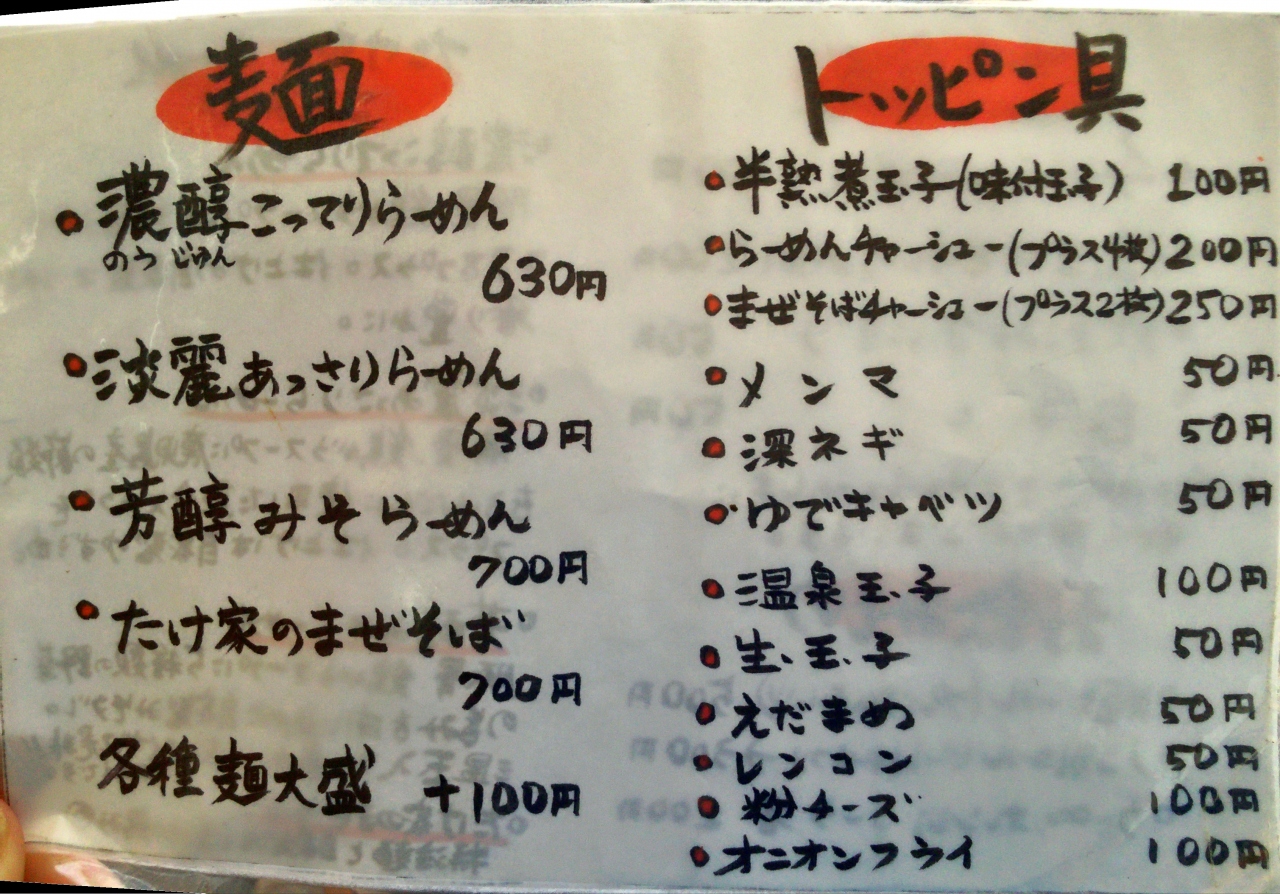 麺
濃醇こってりらーめん
のうじゅん
630円
淡麗あっさりらーめん
630円
芳醇みそらーめん
700円
たけ家のまぜそば
700円
各種麺大盛 +100円
トッピン具
半熟煮玉子(味付玉子) 100円
らーめんチャーシュー(プラス4枚) 200円
まぜそばチャーシュー(プラス2枚) 250円
メンマ 50円
深ネギ 50円
ゆでキャベツ 50円
温泉玉子 100円
生玉子 50円
えだまめ 50円
レンコン 50円
粉チーズ 100円
オニオンフライ 100円